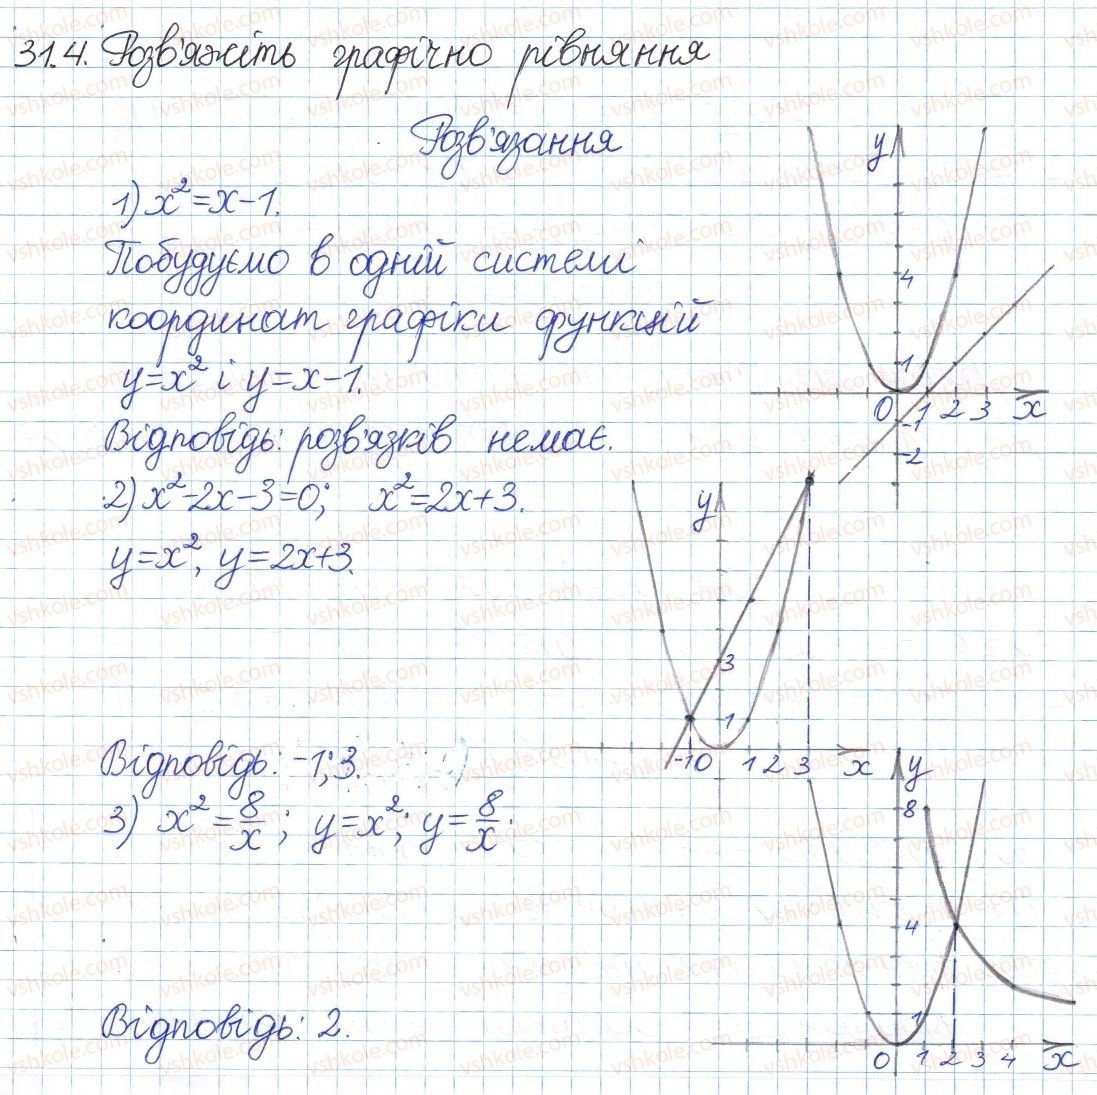 31.4. Розв'яжіть графічно рівняння
Розв'язання
1) x² = x - 1.
Побудуємо в одній системі
координат графіки функцій
y = x² і y = x - 1.
Відповідь: розв'язків немає.
y
4
1
0 1 2 3 x
-1
-2
2) x² - 2x - 3 = 0; x² = 2x + 3.
y = x², y = 2x + 3.
y
3
1
-1 0 1 2 3 x
Відповідь: -1; 3.
3) x² = 8/x; y = x²; y = 8/x.
y
8
4
1
0 1 2 3 4 x
Відповідь: 2.
vshkole.com